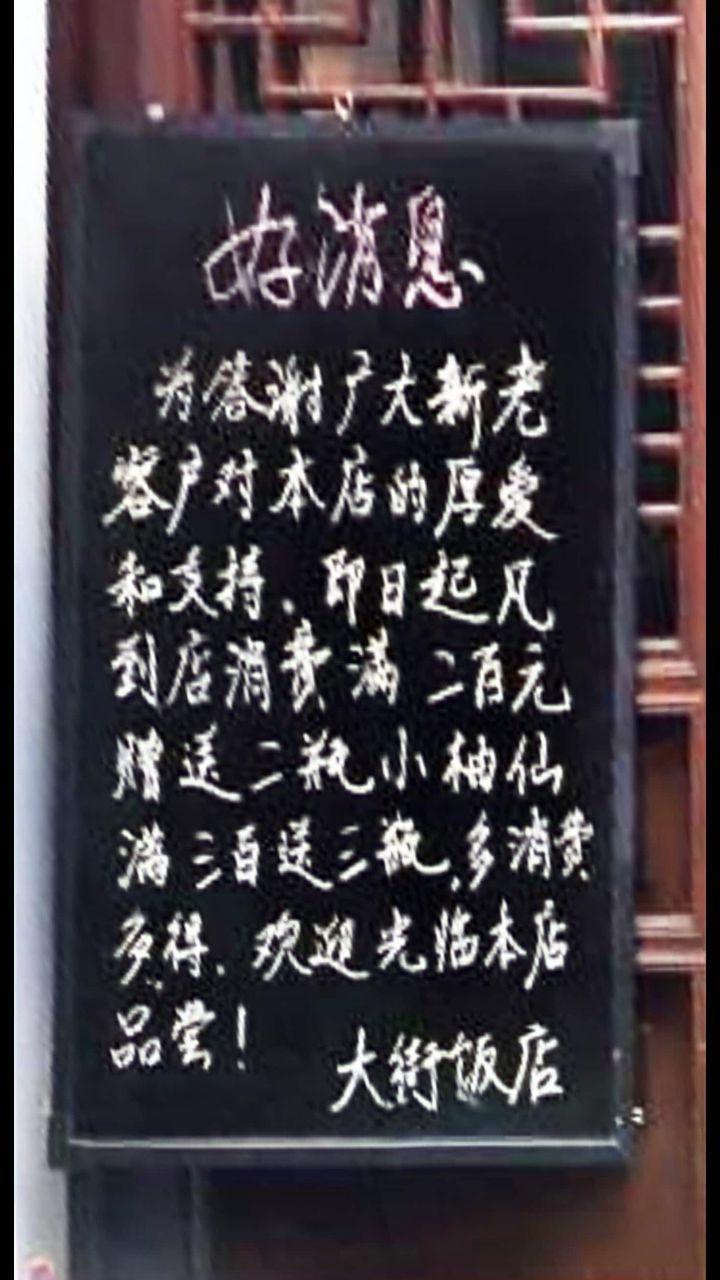 好消息
为答谢广大新老
客户对本店的厚爱
和支持、即日起凡
到店消费满二百元
赠送二瓶小柚仙
满三百送三瓶,多消费
多得、欢迎光临本店
品尝!
大街饭店